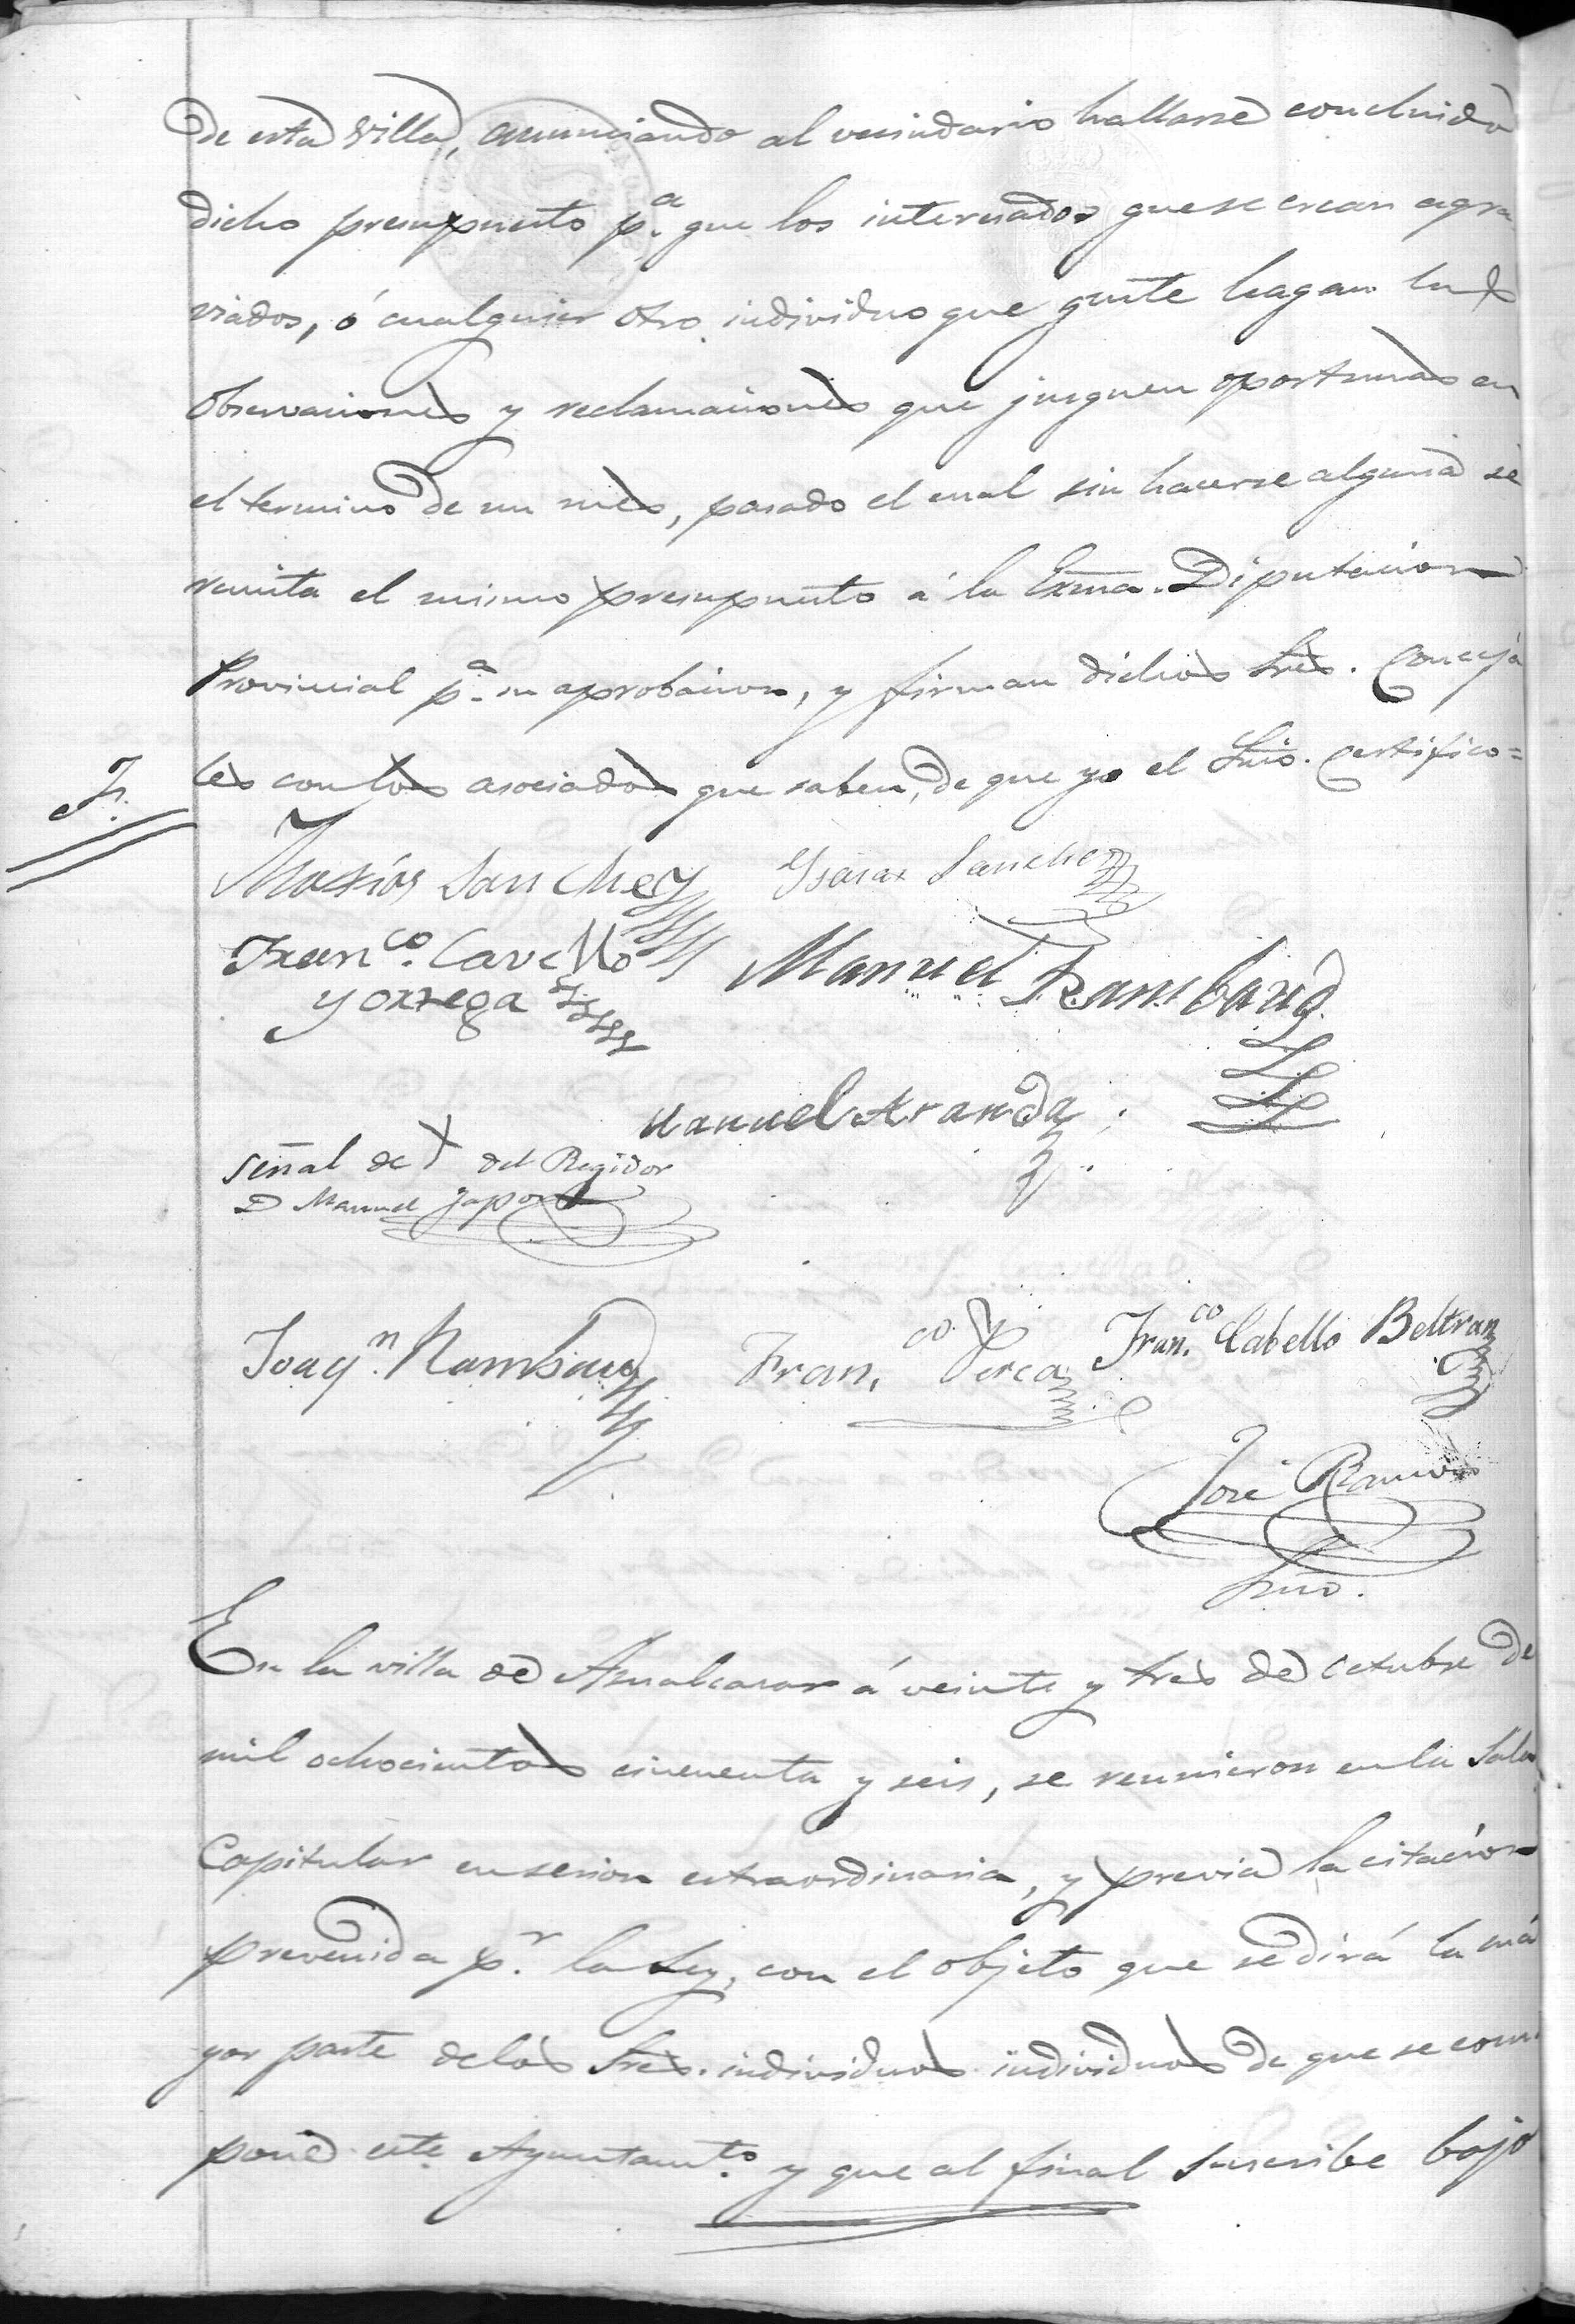 de esta Villa, anunciando al vecindario hallarse concluido
dicho presupuesto p.a que los interesados que se crean agra
viados, ó cualquier otro individuo que guste hagan las
observaciones y reclamaciones que jusguen oportunas en
el termino de un mes, pasado el cual sin hacerse alguna se
remita el mismo presupuesto á la Exma. Diputacion
Provincial p.a su aprobacion, y firman dichos Sres. Conceja
les con los asociados que saben, de que yo el Srio. Certifico=
F.
Sanchez Sanchez
Fran.co Cavello Manuel Rambaud
y orrega
Manuel Aranda
señal de X del Regidor
D Manuel Japon
Joaq.n Rambaud Fran.co Perea Fran.co Cabello Beltran
José Ramos
Srio.
En la villa de Asnalcasar á veinte y tres de Octubre de
mil ochocientos cincuenta y seis, se reunieron en la Sala
Capitular en sesion extraordinaria, y previa la citacion
prevenida p.r la Ley, con el objeto que se dirá la ma
yor parte de los Sres. individuos individuos de que se com
pone este Ayuntamto. y que al final suscribe bajo